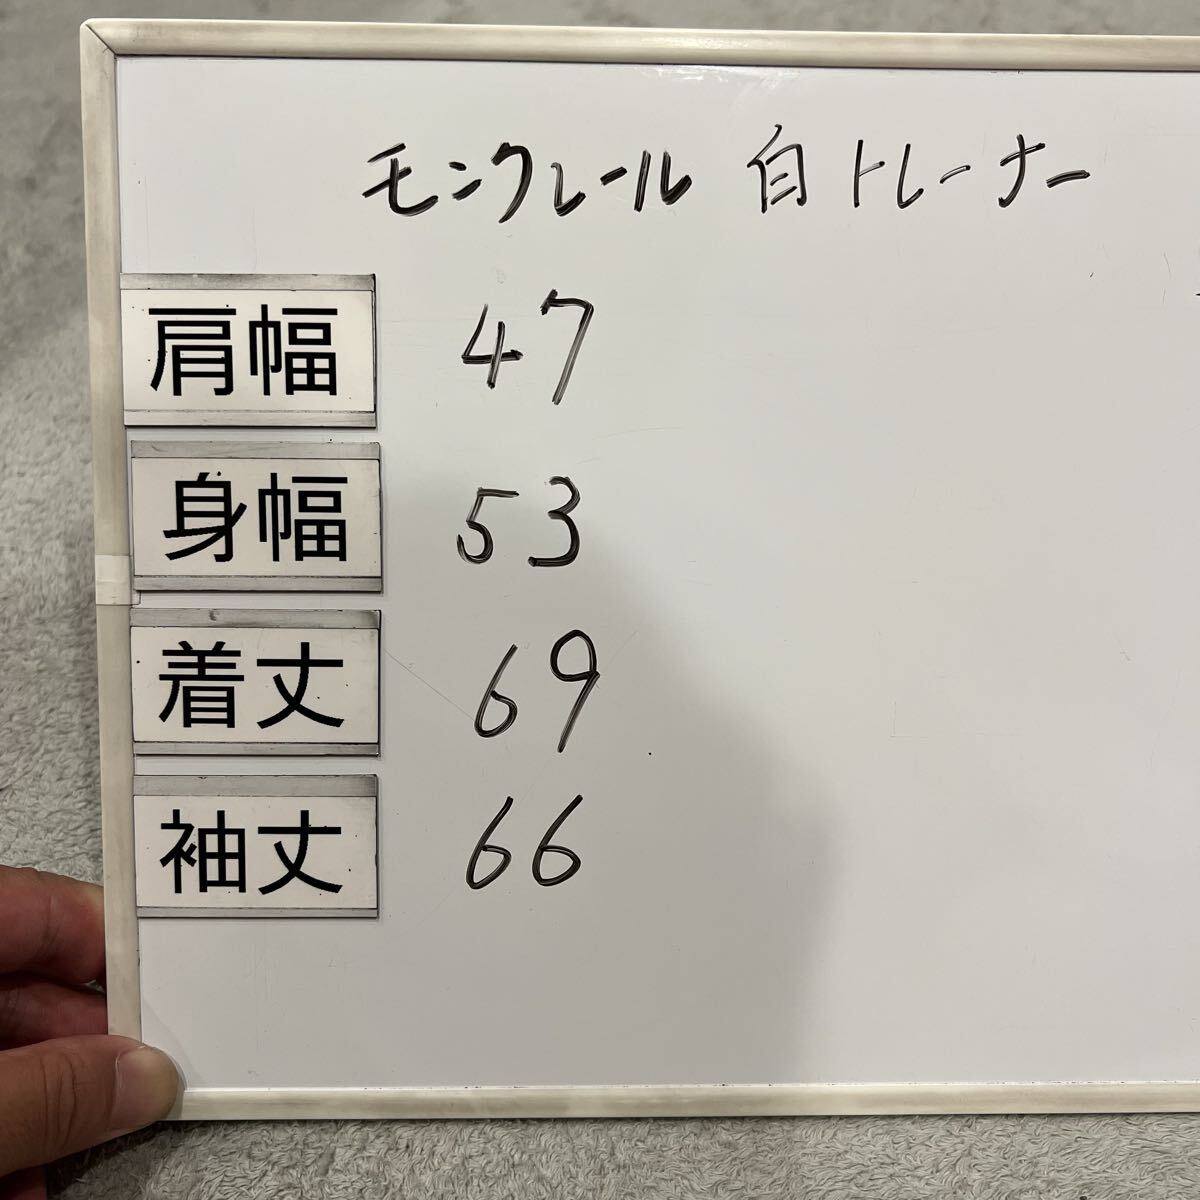 モンクレール 白 トレーナー
肩幅 47
身幅 53
着丈 69
袖丈 66